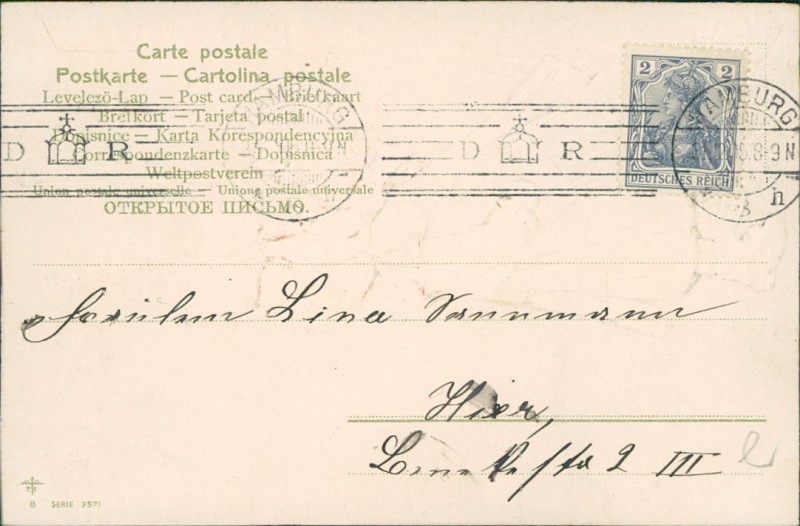 Carte postale
Postkarte — Cartolina postale
Levelezō-Lap — Post card — Briefkaart
Brefkort — Tarjeta postal
Dopisnice — Karta Korespondencyjna
Correspondenzkarte — Dopisnica
Weltpostverein
Union postale universelle — Unione postale universale
ОТКРЫТОЕ ПИСЬМО.
D R
D R
HAMBURG
8-9N
h
2 2
DEUTSCHES REICH
Fräulein Lina Sannmann
Hier,
2 III
B SERIE 2571